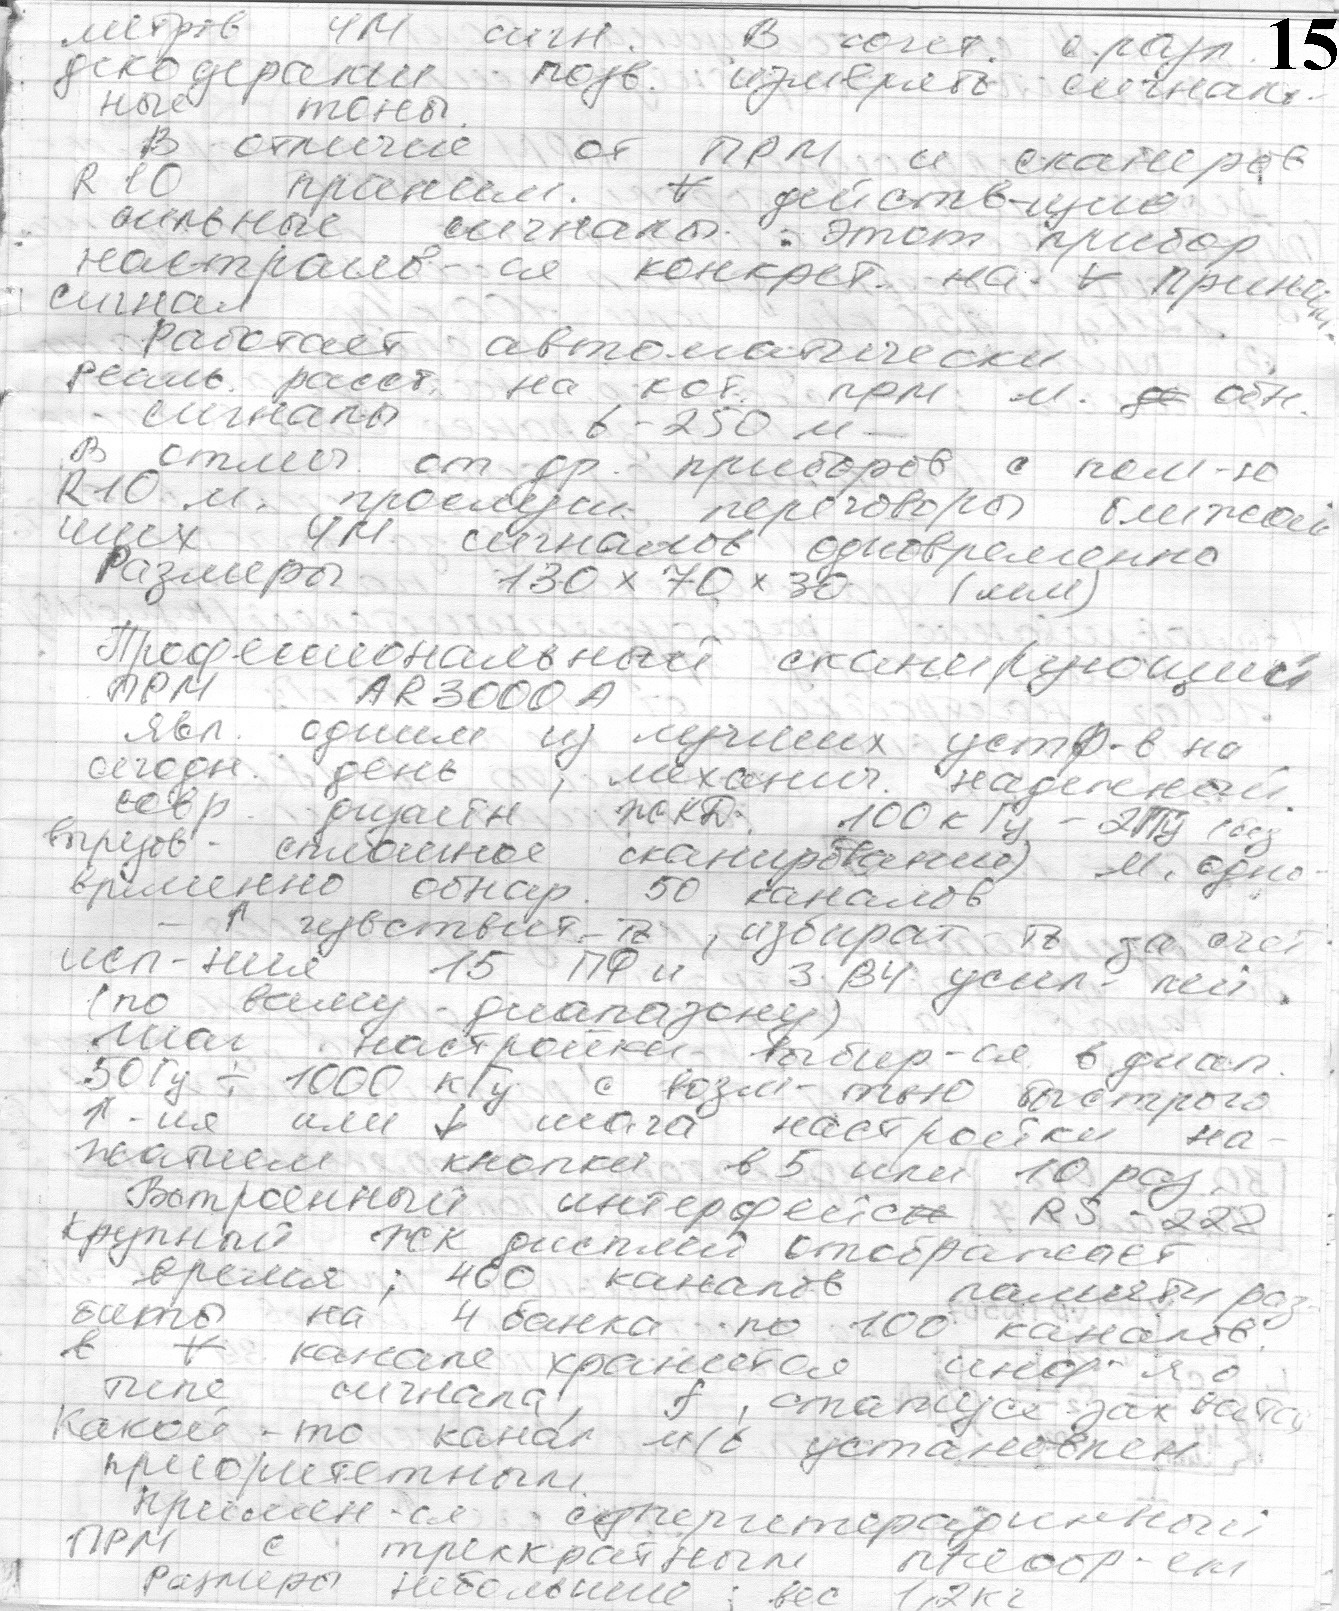 метров ЧМ сигн. В сочет. с разл. 15
декодерами позв. измерять сигналь-
ные тоны.
В отличие от ПРМ и сканеров
R10 приним. ∀ действ-щие
сильные сигналы. Этот прибор
настраив-ся конкрет. на ∀ приним.
сигнал
Работает автоматически
Реаль. расст. на кот. ПРМ м. обн.
сигналы 6-250 м
В отлич. от др. приборов с пом-ю
R10 м. прослуш. переговоры ближай
ших ЧМ сигналов одновременно
Размеры 130 × 70 × 30 (мм)
Профессиональный сканирующий
ПРМ AR3000A
Явл. одним из лучших устр-в на
сегодн. день, механич. надежный.
совр. дизайн ЖКД. 100 кГц - 2ГГц (без
вырезов - сплошное сканирование) М. одно-
временно обнар. 50 каналов
- ↑ чувствит-ть, избират-ть за счет
исп-ния 15 ПФ и 3 ВЧ усил-лей.
(по всему диапазону)
Шаг настройки выбир-ся в диап.
50Гц ÷ 1000 кГц с возм-тью быстрого
↑-ия или ↓ шага настройки на-
жатием кнопки в 5 или 10 раз.
Встроенный интерфейс RS-222
Крупный ЖК дисплей отображает
время; 400 каналов памяти раз-
биты на 4 банка по 100 каналов.
в ∀ канале хранится инф-я о
типе сигнала, f, статусе захвата,
Какой-то канал м/б установлен
приоритетным.
Примен-ся супергетеродинный
ПРМ с трехкратным преобр-ем
Размеры небольшие; вес 1,2кг